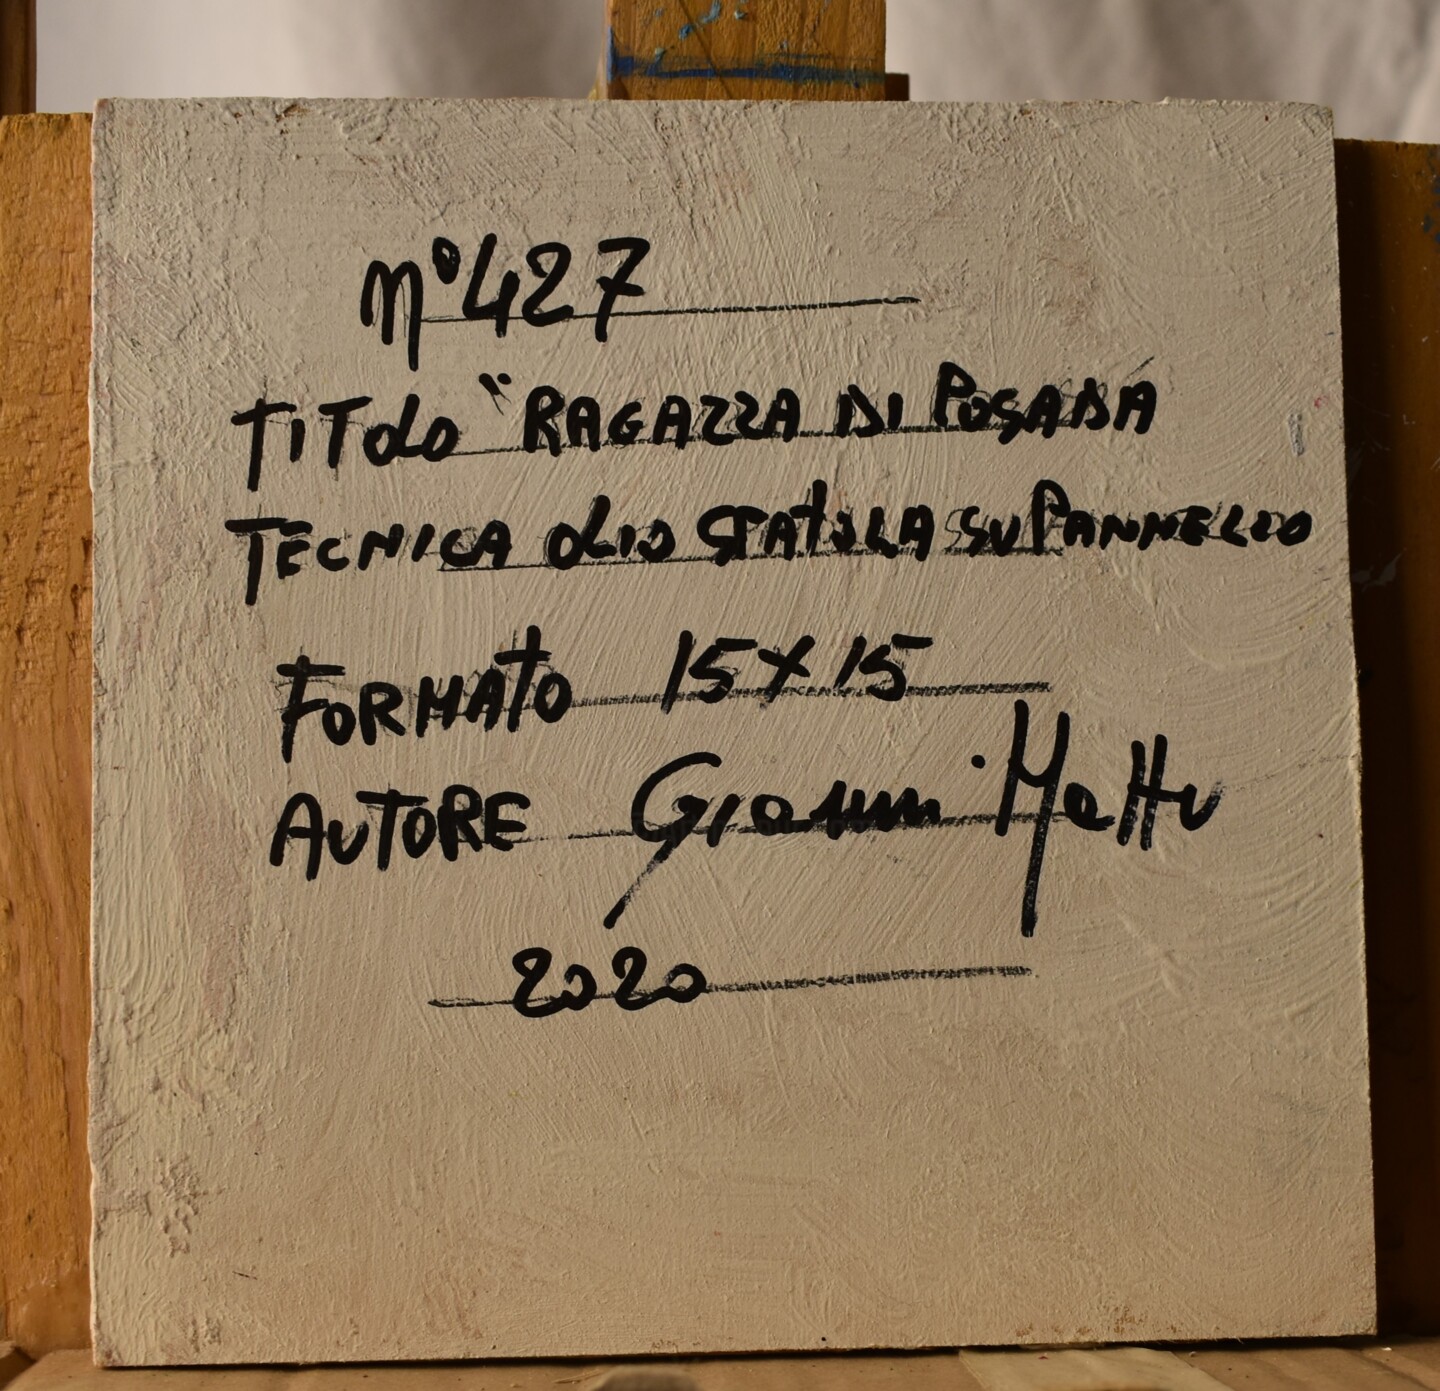 n°427
TITOLO "RAGAZZA DI POSADA
TECNICA OLIO SPATOLA SU PANNELLO
FORMATO 15X15
AUTORE Gianni Mattu
2020